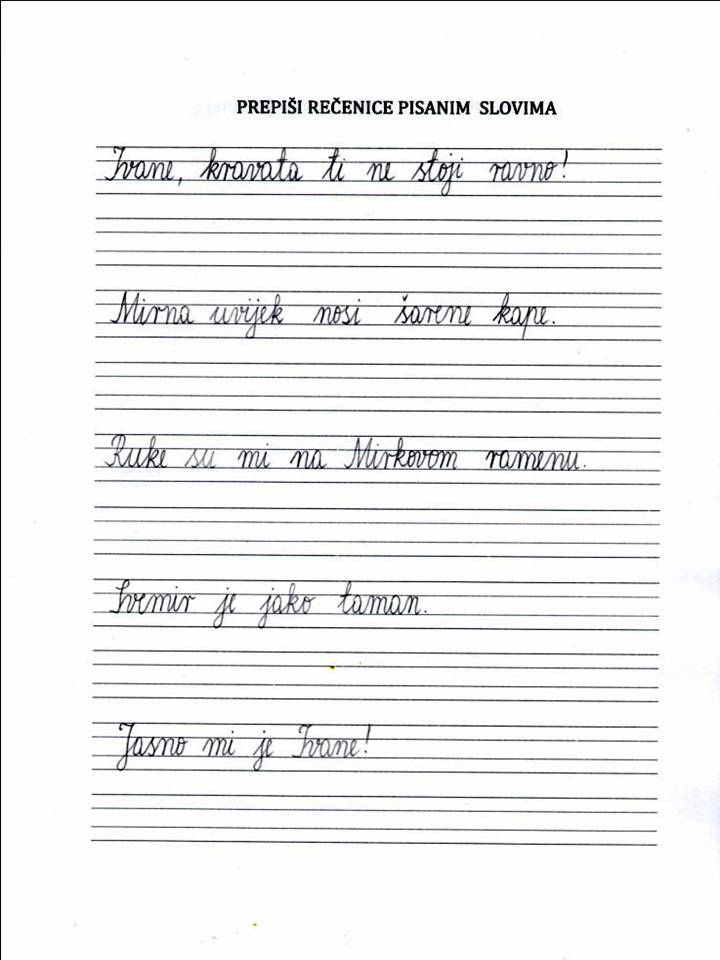 PREPIŠI REČENICE PISANIM SLOVIMA
Ivane, kravata ti ne stoji ravno!
Mirna uvijek nosi šarene kape.
Ruke su mi na Mirkovom ramenu.
Svemir je jako taman.
Jasno mi je Ivane!